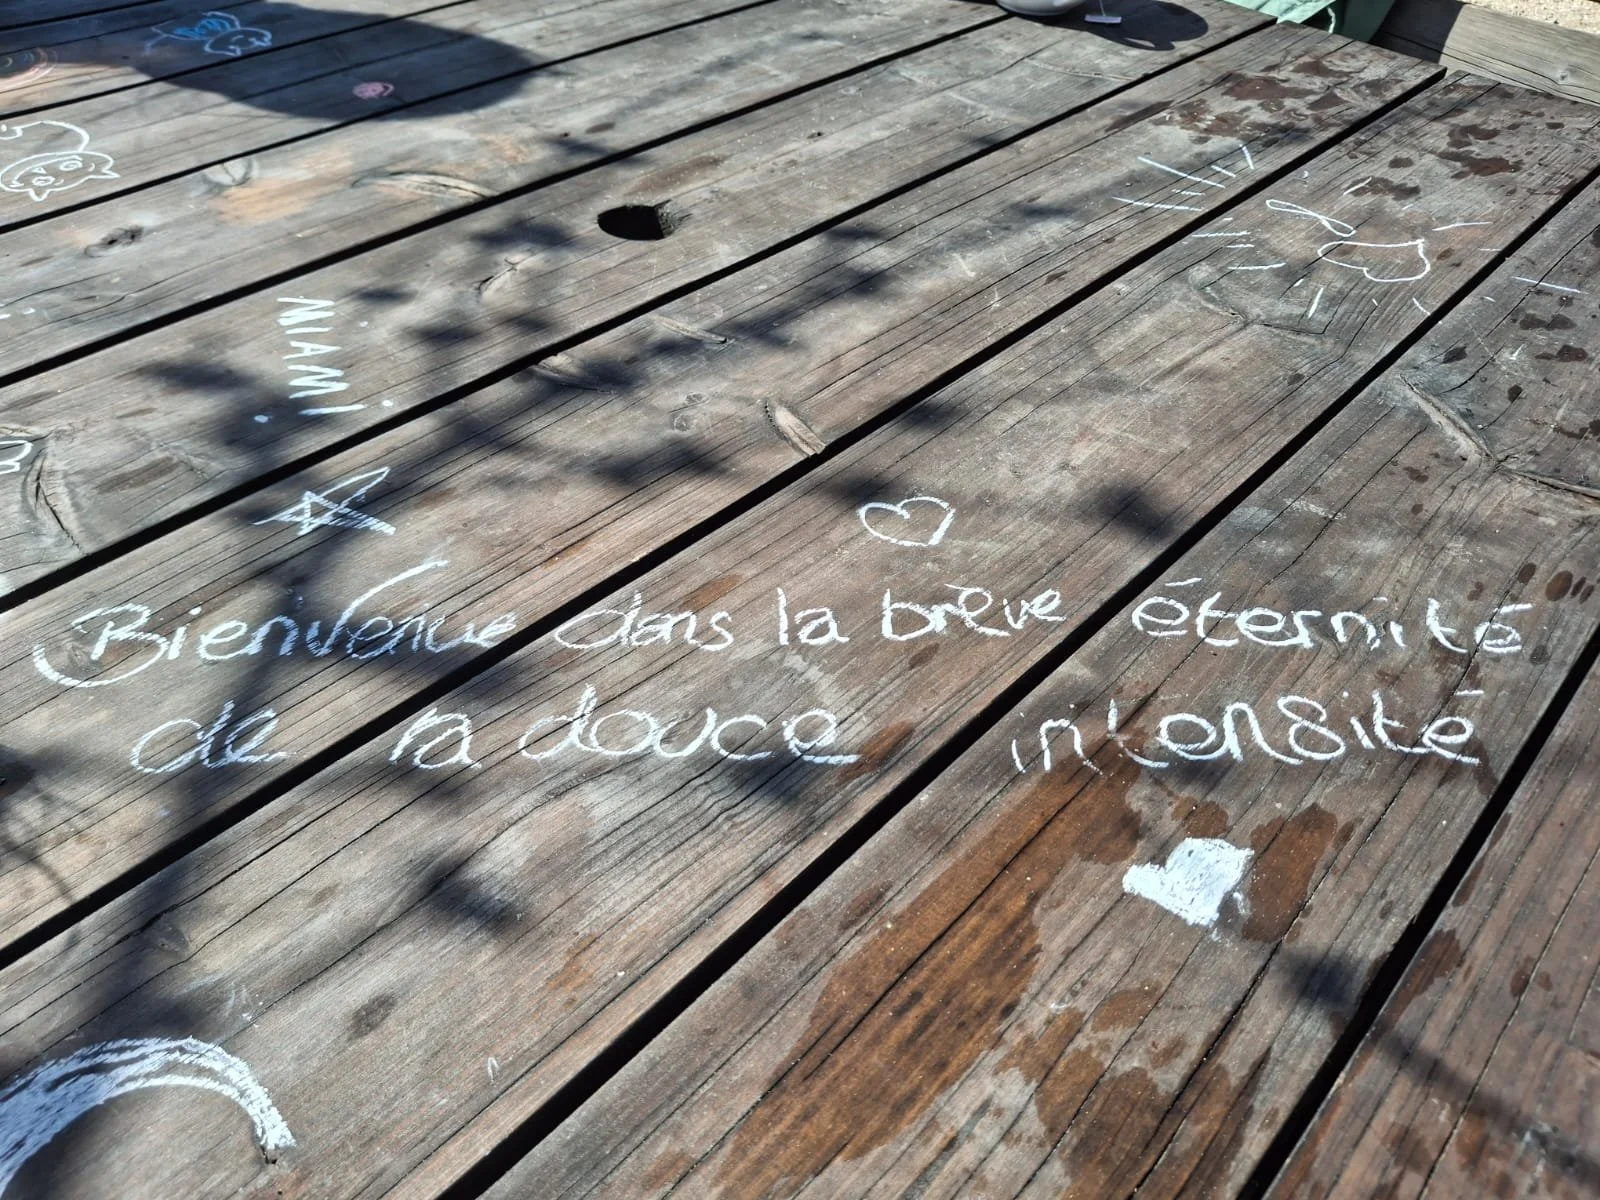 MIAM!
Bienvenue dans la brève éternité
de ra douce intensité